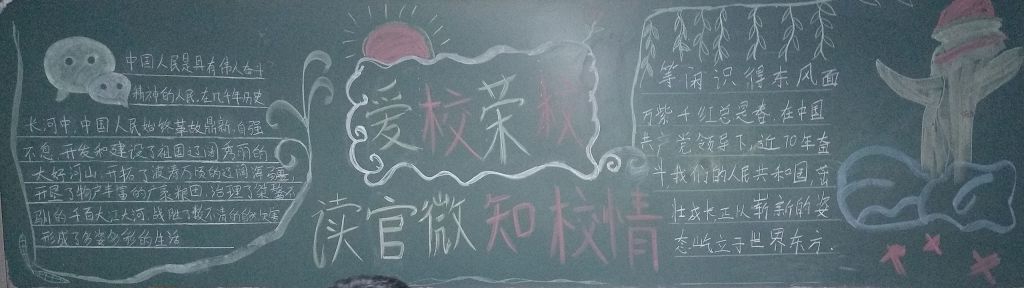 中国人民是具有伟人奋斗
精神的人民,在几千年历史
长河中,中国人民始终革故鼎新,自强
不息,开发和建设了祖国辽阔秀丽的
大好河山,开拓了波涛万顷的辽阔海疆,
开垦了物产丰富的广袤粮田,治理了桀骜不
驯的千百大江大河,战胜了数不清的自然灾害
形成了多姿多彩的生活
爱校荣校
读官微知校情
等闲识得东风面
万紫千红总是春,在中国
共产党领导下,近70年奋
斗我们的人民共和国,茁
壮成长正以崭新的姿
态屹立于世界东方.